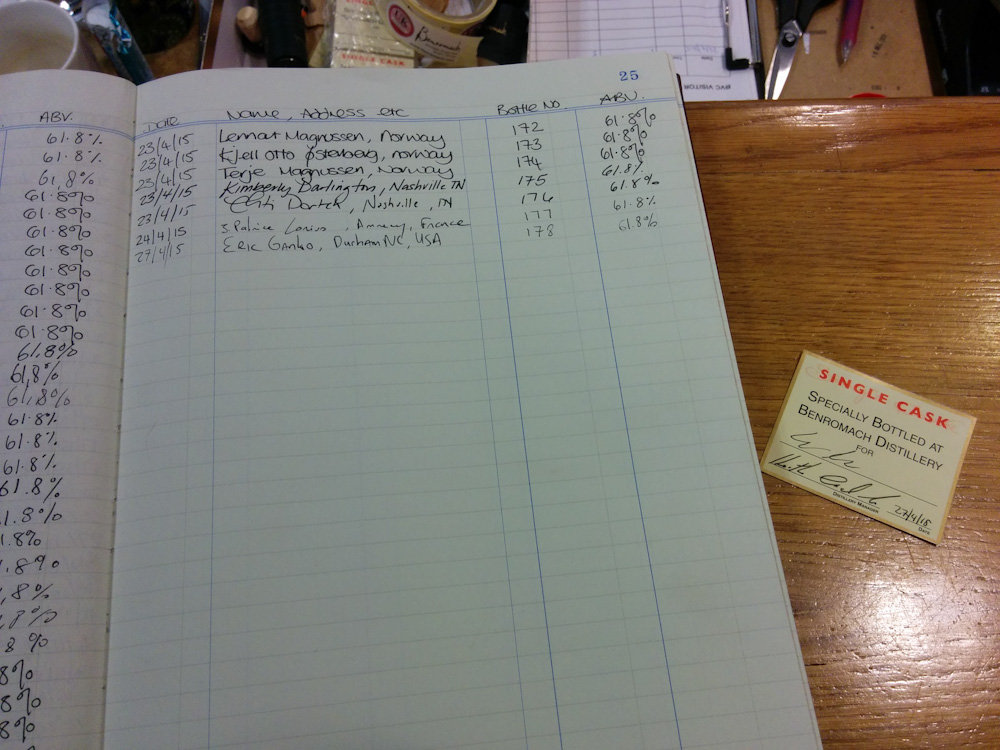 UK
Benromach
SINGLE CASK
BVC VISITOR
25
ABV.
DATE Name, Address etc Bottle No. ABV.
23/4/15 Lennart Magnussen, Norway 172 61.8%
23/4/15 Kjell Otto Østerberg, norway 173 61.8%
23/4/15 Terje Magnussen, Norway 174 61.8%
23/4/15 Kimberly Darlington, Nashville TN 175 61.8%
23/4/15 Dortch, Nashville, TN 176 61.8%
24/4/15 Patrice, France 177 61.8%
27/4/15 Eric Ganko, Durham NC, USA 178 61.8%
61.8%
61.8%
61,8%
61.8%
61.8%
61.8%
61.8%
61.8%
61.8%
61.8%
61.8%
61.8%
61,8%
61,8%
61.8%
61.8%
61.8%
61.8%
1.8%
1.8%
1.8%
,8%
,8%
8%
8%
8%
8%
SINGLE CASK
SPECIALLY BOTTLED AT
BENROMACH DISTILLERY
FOR
DISTILLERY MANAGER
27/4/15
DATE